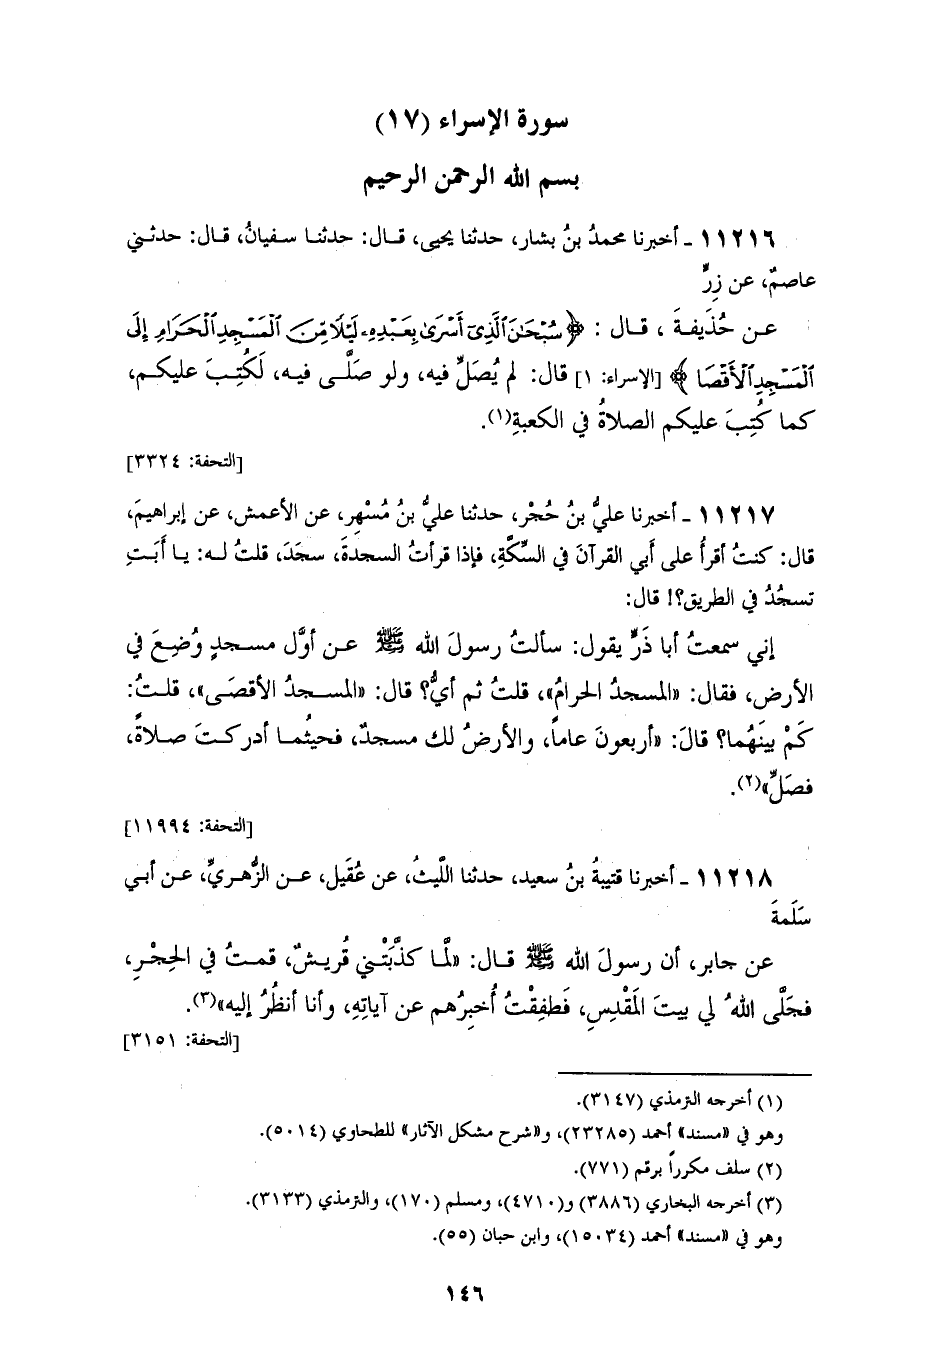 سورة الإسراء (١٧)
بسم الله الرحمن الرحيم
١١٢١٦ ـ أخبرنا محمدُ بنُ بشار، حدثنا يحيى، قـال: حدثنـا سفيانُ، قال: حدثـني
عاصمٌ، عن زِرٍّ
عـن حُذَيفـةَ ، قـال : ﴿سُبْحَٰنَ ٱلَّذِىٓ أَسْرَىٰ بِعَبْدِهِۦ لَيْلًا مِّنَ ٱلْمَسْجِدِ ٱلْحَرَامِ إِلَى
ٱلْمَسْجِدِ ٱلْأَقْصَا﴾ [الإسراء: ١] قال: لم يُصَلِّ فيه، ولو صَلَّـى فيـه، لَكُتِـبَ عليكـم،
كما كُتِبَ عليكم الصلاةُ في الكعبةِ(١).
[التحفة: ٣٣٢٤]
١١٢١٧ ـ أخبرنا عليُّ بنُ حُجْر، حدثنا عليُّ بنُ مُسْهِر، عن الأعمش، عن إبراهيمَ،
قال: كنتُ أقرأُ على أَبي القرآنَ في السِّكَّةِ، فإذا قرأتُ السجدةَ، سجَدَ، قلتُ لـه: يـا أَبَـتِ
تسجُدُ في الطريق؟! قال:
إني سمعتُ أبا ذَرٍّ يقول: سألتُ رسولَ الله ﷺ عـن أوَّل مسـجدٍ وُضِـعَ في
الأرض، فقال: «المسجدُ الحرامُ»، قلتُ ثم أيُّ؟ قال: «المسـجدُ الأقصَـى»، قلـتُ:
كَمْ بينَهُما؟ قالَ: «أربعونَ عاماً، والأرضُ لك مسجدٌ، فحيثُمـا أدركـتَ صـلاةً،
فصَلِّ»(٢).
[التحفة: ١١٩٩٤]
١١٢١٨ ـ أخبرنا قتيبةُ بنُ سعيد، حدثنا اللَّيثُ، عن عُقَيل، عـن الزُّهـريِّ، عـن أبـي
سَلَمةَ
عن جابر، أن رسولَ الله ﷺ قـال: «لَّمـا كذَّبَتْـني قُريـشٌ، قمـتُ في الحِجْـرِ،
فجَلَّى اللهُ لي بيتَ المَقْدِسِ، فَطفِقْتُ أُخبِرُهم عن آياتِهِ، وأنا أنظُرُ إليه»(٣).
[التحفة: ٣١٥١]
(١) أخرجه الترمذي (٣١٤٧).
وهو في «مسند» أحمد (٢٣٢٨٥)، و«شرح مشكل الآثار» للطحاوي (٥٠١٤).
(٢) سلف مكرراً برقم (٧٧١).
(٣) أخرجه البخاري (٣٨٨٦) و(٤٧١٠)، ومسلم (١٧٠)، والترمذي (٣١٣٣).
وهو في «مسند» أحمد (١٥٠٣٤)، وابن حبان (٥٥).
١٤٦